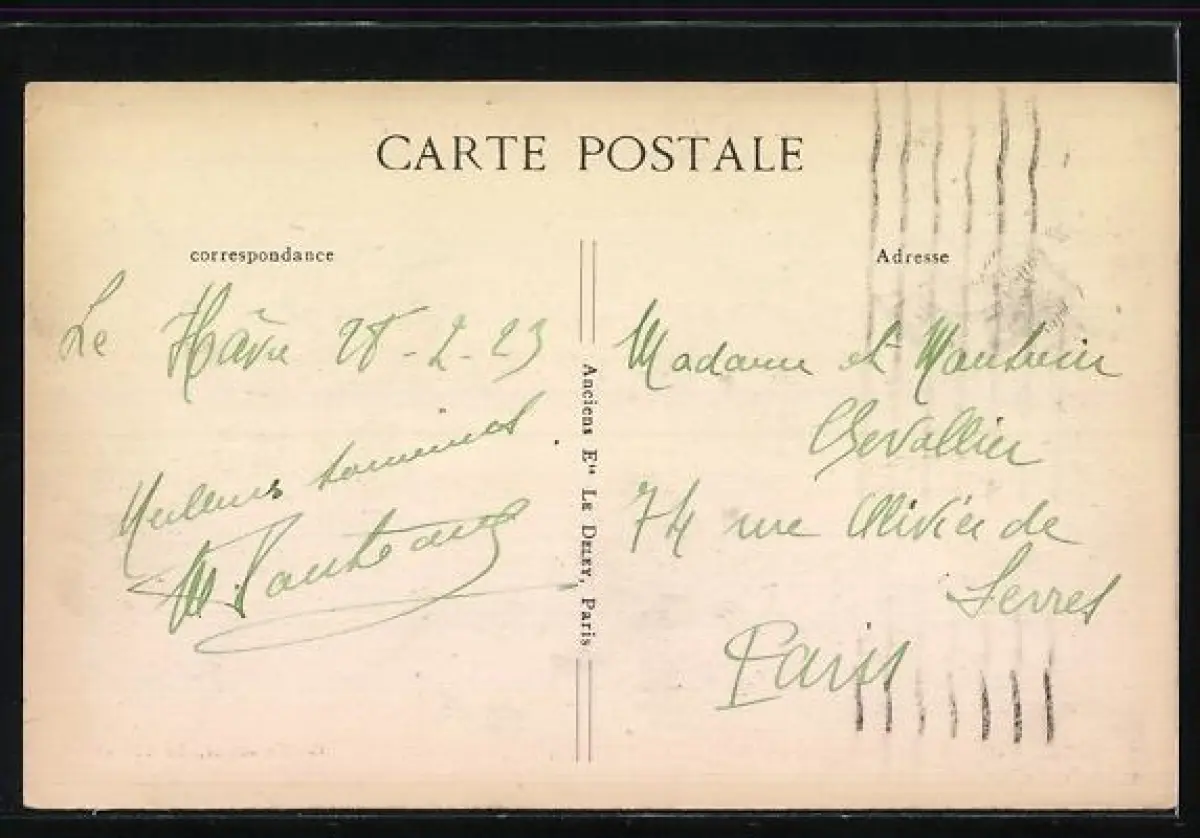 CARTE POSTALE
correspondance
Le Hâvre 28-2-23
Meilleurs souvenirs
Adresse
Madame et Monsieur
Chevallier
74 rue Olivier de
Serres
Paris
Anciens Ets LE DELEY, Paris